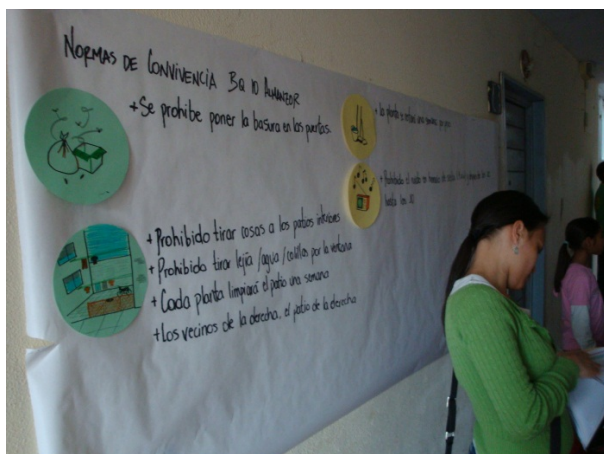 NORMAS DE CONVIVENCIA BQ 10 ALMANZOR
+ Se prohibe poner la basura en las puertas.
+ Prohibido tirar cosas a los patios interiores
+ Prohibido tirar lejía /agua /colillas por la ventana
+ Cada planta limpiará el patio una semana
+ Los vecinos de la derecha, el patio de la derecha
+ La planta
+ Prohibido el ruido
hasta las